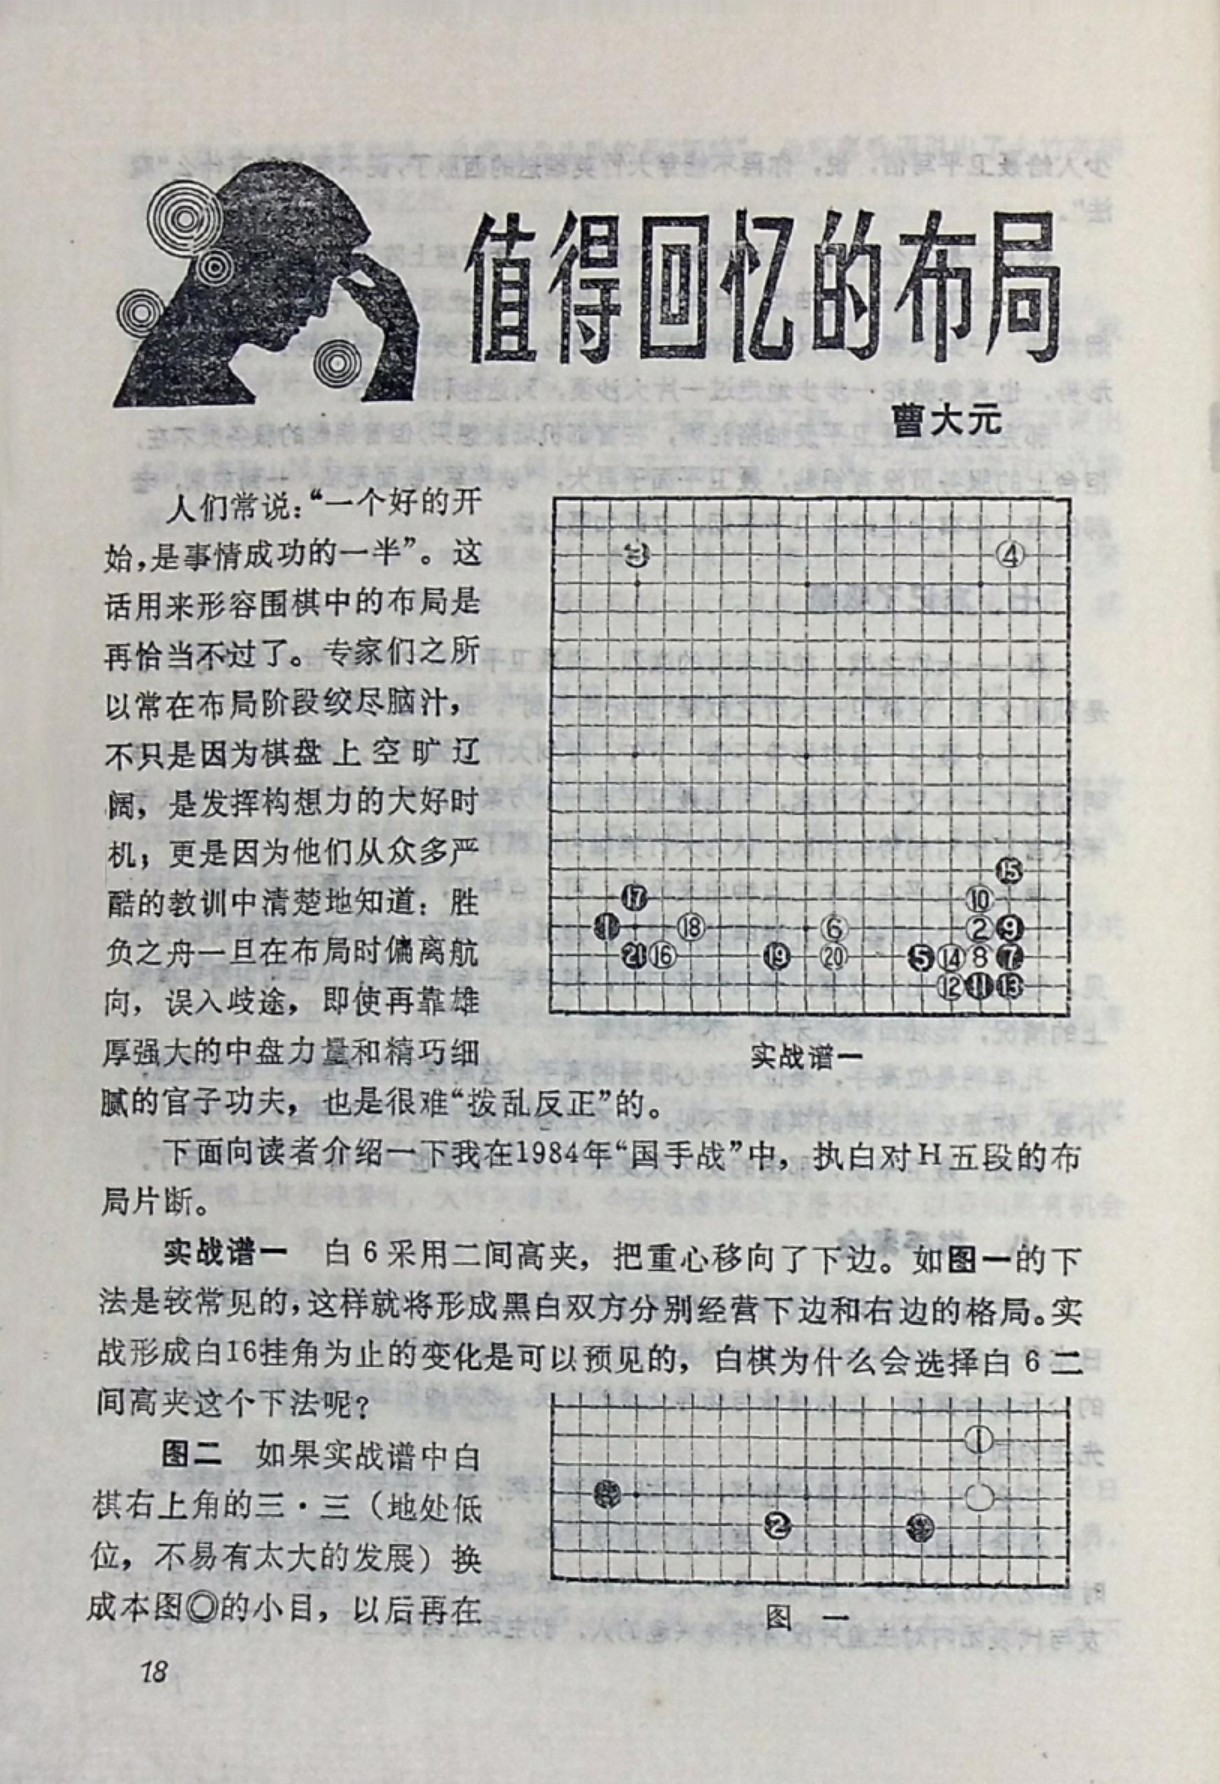 值得回忆的布局
曹大元
人们常说:“一个好的开
始,是事情成功的一半”。这
话用来形容围棋中的布局是
再恰当不过了。专家们之所
以常在布局阶段绞尽脑汁,
不只是因为棋盘上空旷辽
阔,是发挥构想力的大好时
机;更是因为他们从众多严
酷的教训中清楚地知道:胜
负之舟一旦在布局时偏离航
向,误入歧途,即使再靠雄
厚强大的中盘力量和精巧细
腻的官子功夫,也是很难“拨乱反正”的。
3 4
15
17 10
1 18 6 2 9
21 16 19 20 5 14 8 7
12 11 13
实战谱一
下面向读者介绍一下我在1984年“国手战”中,执白对H五段的布
局片断。
实战谱一 白6采用二间高夹,把重心移向了下边。如图一的下
法是较常见的,这样就将形成黑白双方分别经营下边和右边的格局。实
战形成白16挂角为止的变化是可以预见的,白棋为什么会选择白6二
间高夹这个下法呢?
图二 如果实战谱中白
棋右上角的三·三(地处低
位,不易有太大的发展)换
成本图◎的小目,以后再在
1
2
图一
18